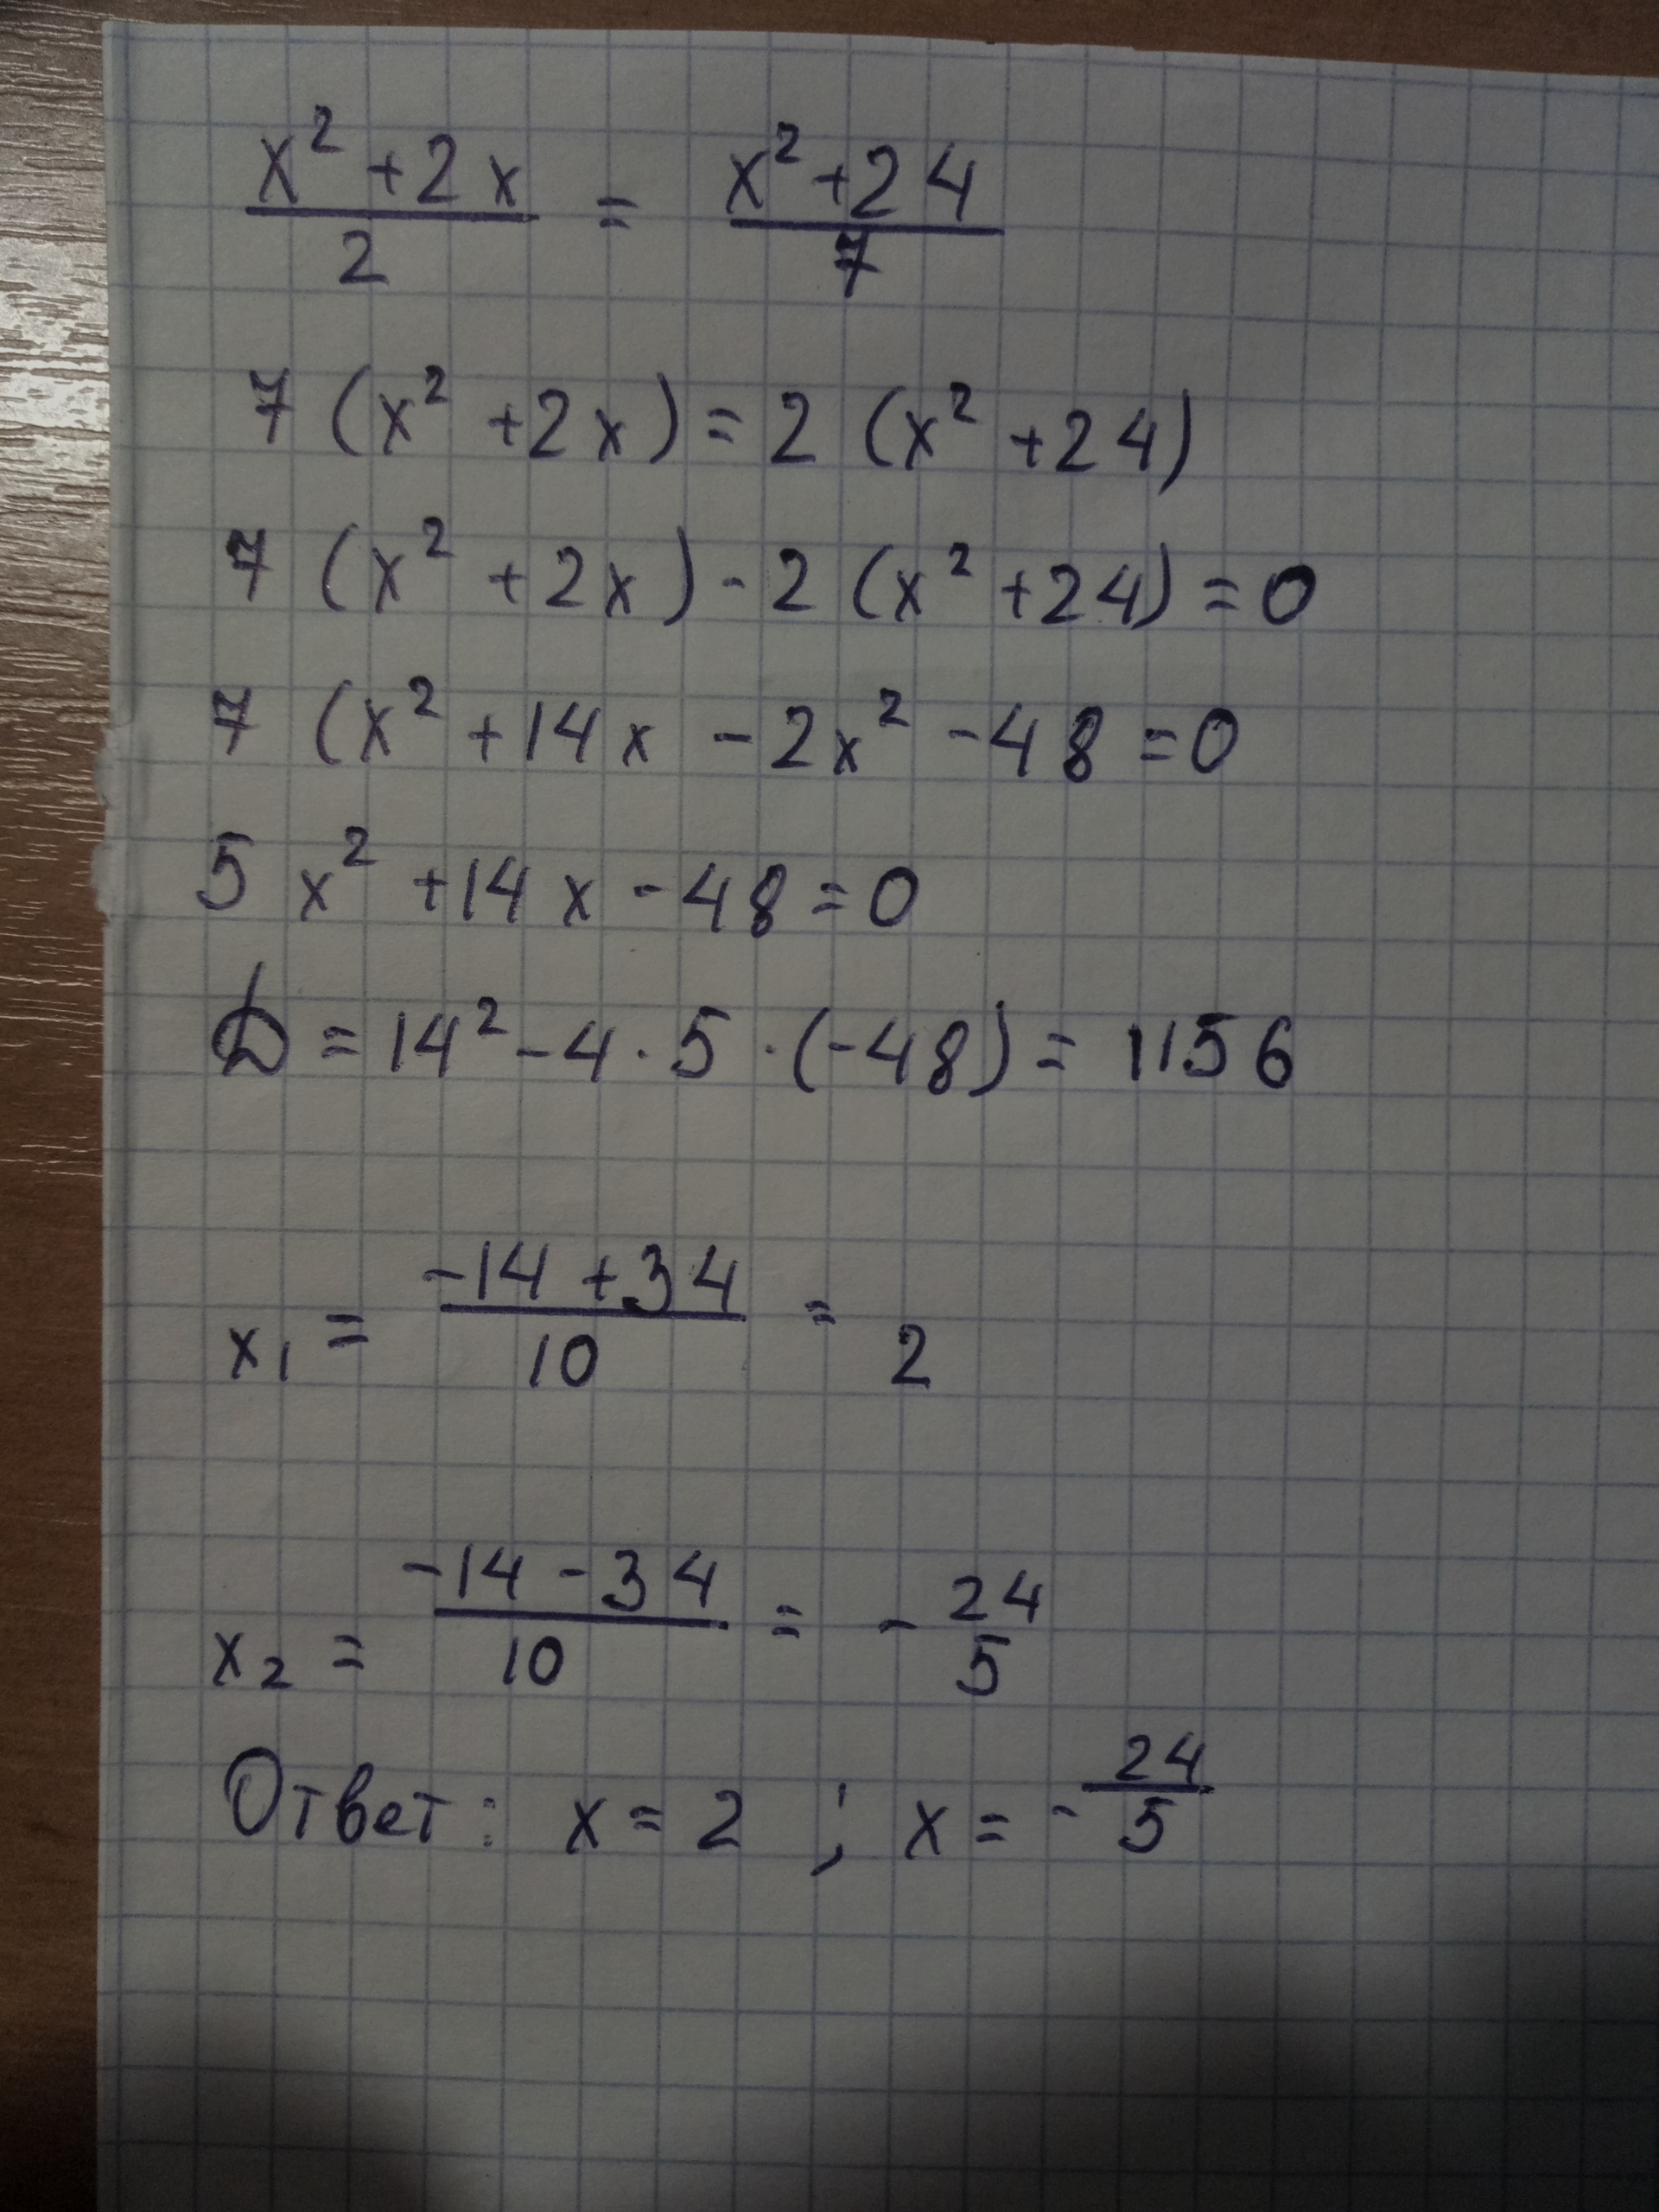 x² + 2x / 2 = x² + 24 / 7
7 (x² + 2x) = 2 (x² + 24)
7 (x² + 2x) - 2 (x² + 24) = 0
7 (x² + 14x - 2x² - 48 = 0
5 x² + 14x - 48 = 0
D = 14² - 4 · 5 · (-48) = 1156
x₁ = -14 + 34 / 10 = 2
x₂ = -14 - 34 / 10 = - 24 / 5
Ответ: x = 2 ; x = - 24 / 5